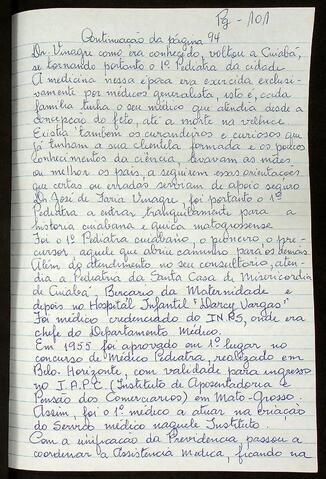 Pg - 101
Continuação da página 94
Dr. Vinagre como era conhecido, voltou a Cuiabá,
se tornando portanto o 1º Pediatra da cidade.
A medicina nessa época era exercida exclusi-
vamente por médicos generalista, isto é, cada
família tinha o seu médico que atendia desde a
concepção do feto, até a morte na velhice.
Existia também os curandeiros e curiosos que
já tinham a sua clientela formada e os poucos
conhecimentos da ciência, levavam as mães,
ou melhor os pais, a seguirem essas orientações
que certas ou erradas serviram de apoio seguro
Dr José de Faria Vinagre, foi portanto o 1º
Pediatra a entrar tranquilamente para a
história cuiabana e quiçá matogrossense
Foi o 1º Pediatra cuiabano, o pioneiro o pre-
cursor, aquele que abriu caminho para os demais.
Além do atendimento no seu consultório, aten-
dia a Pediatria da Santa Casa de Misericordia
de Cuiabá, Berçario da Maternidade e
depois no Hospital Infantil "Darcy Vargas"
Foi médico credenciado do I.N.P.S, onde era
chefe do Departamento Médico.
Em 1955 foi aprovado em 1º lugar no
concurso de Médico Pediatra, realizado em
Belo Horizonte, com validade para ingresso
no I.A.P.C (Instituto de Aposentadoria e
Pensão dos Comerciarios) em Mato-Grosso.
Assim, foi o 1º médico a atuar na criação
do Serviço médico naquele Instituto.
Com a unificação da Previdencia passou a
coordenar a Assistencia Medica, ficando na